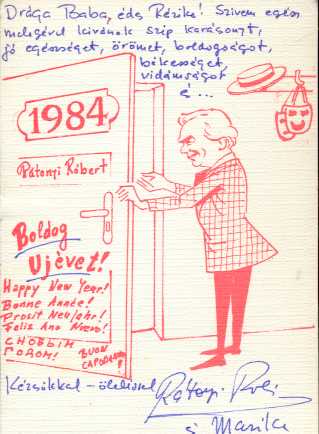 Drága Baba, édes Rézike! Szivem egész
melegével kivánok szép karácsonyt,
jó egészséget, örömet, boldogságot,
békességet,
vidámságot
é...
1984
Rátonyi Róbert
Boldog
Ujévet!
Happy New Year!
Bonne Année!
Prosit Neujahr!
Feliz Ano Nuevo!
С НОВЫМ
ГОДОМ!
BUON
CAPODANNO!
Kézsókkal – öleléssel
Rátonyi Robi
s Marika